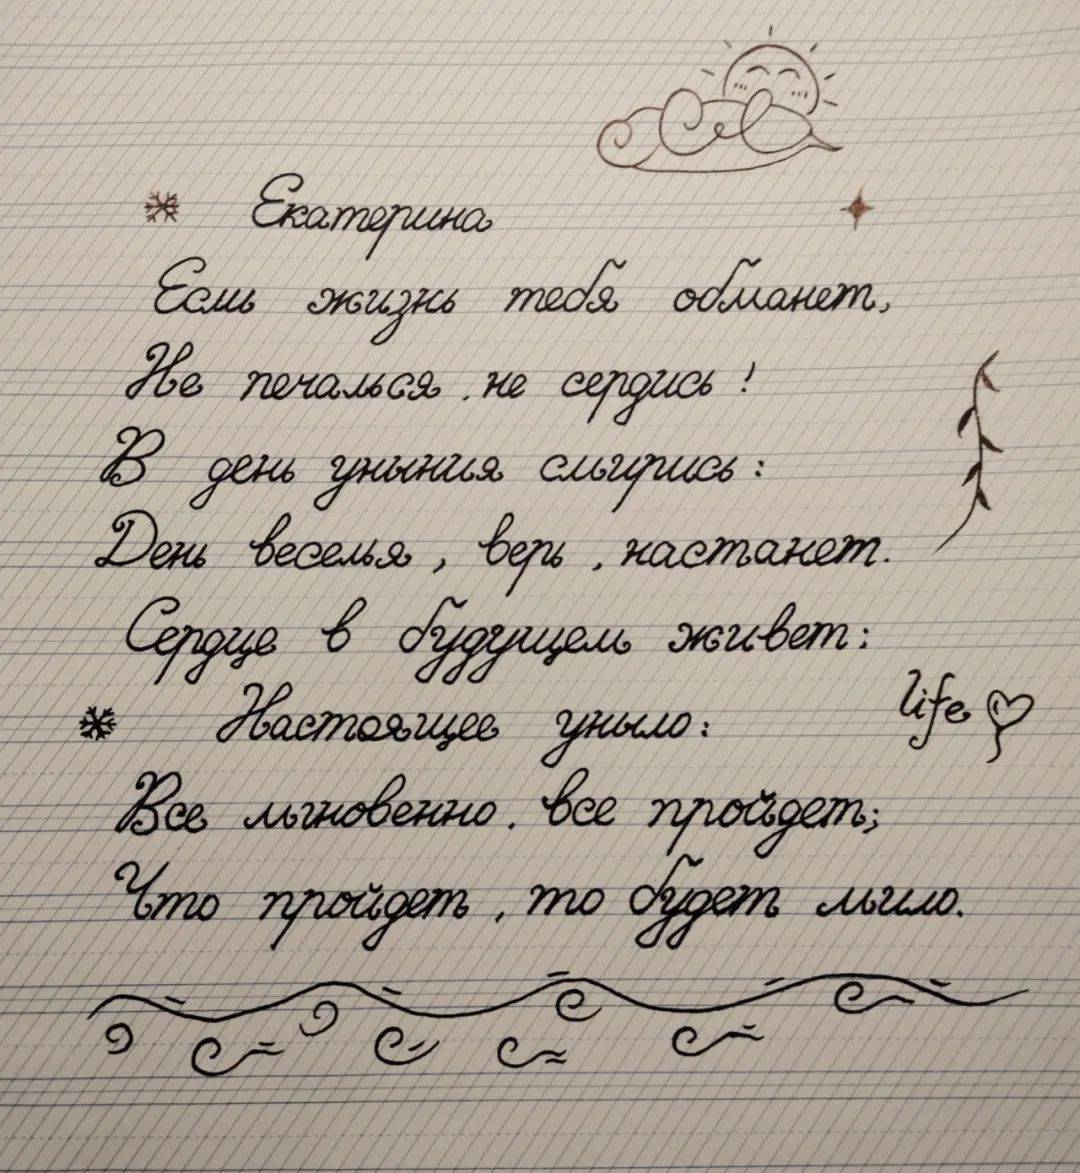 Екатерина
Есль жизнь тебя обманет,
Не печалься, не сердись!
В день уныния смирись:
День веселья, верь, настанет.
Сердце в будущем живет:
Настоящее уныло:
life
Все мгновенно, все пройдет;
Что пройдет, то будет мило.